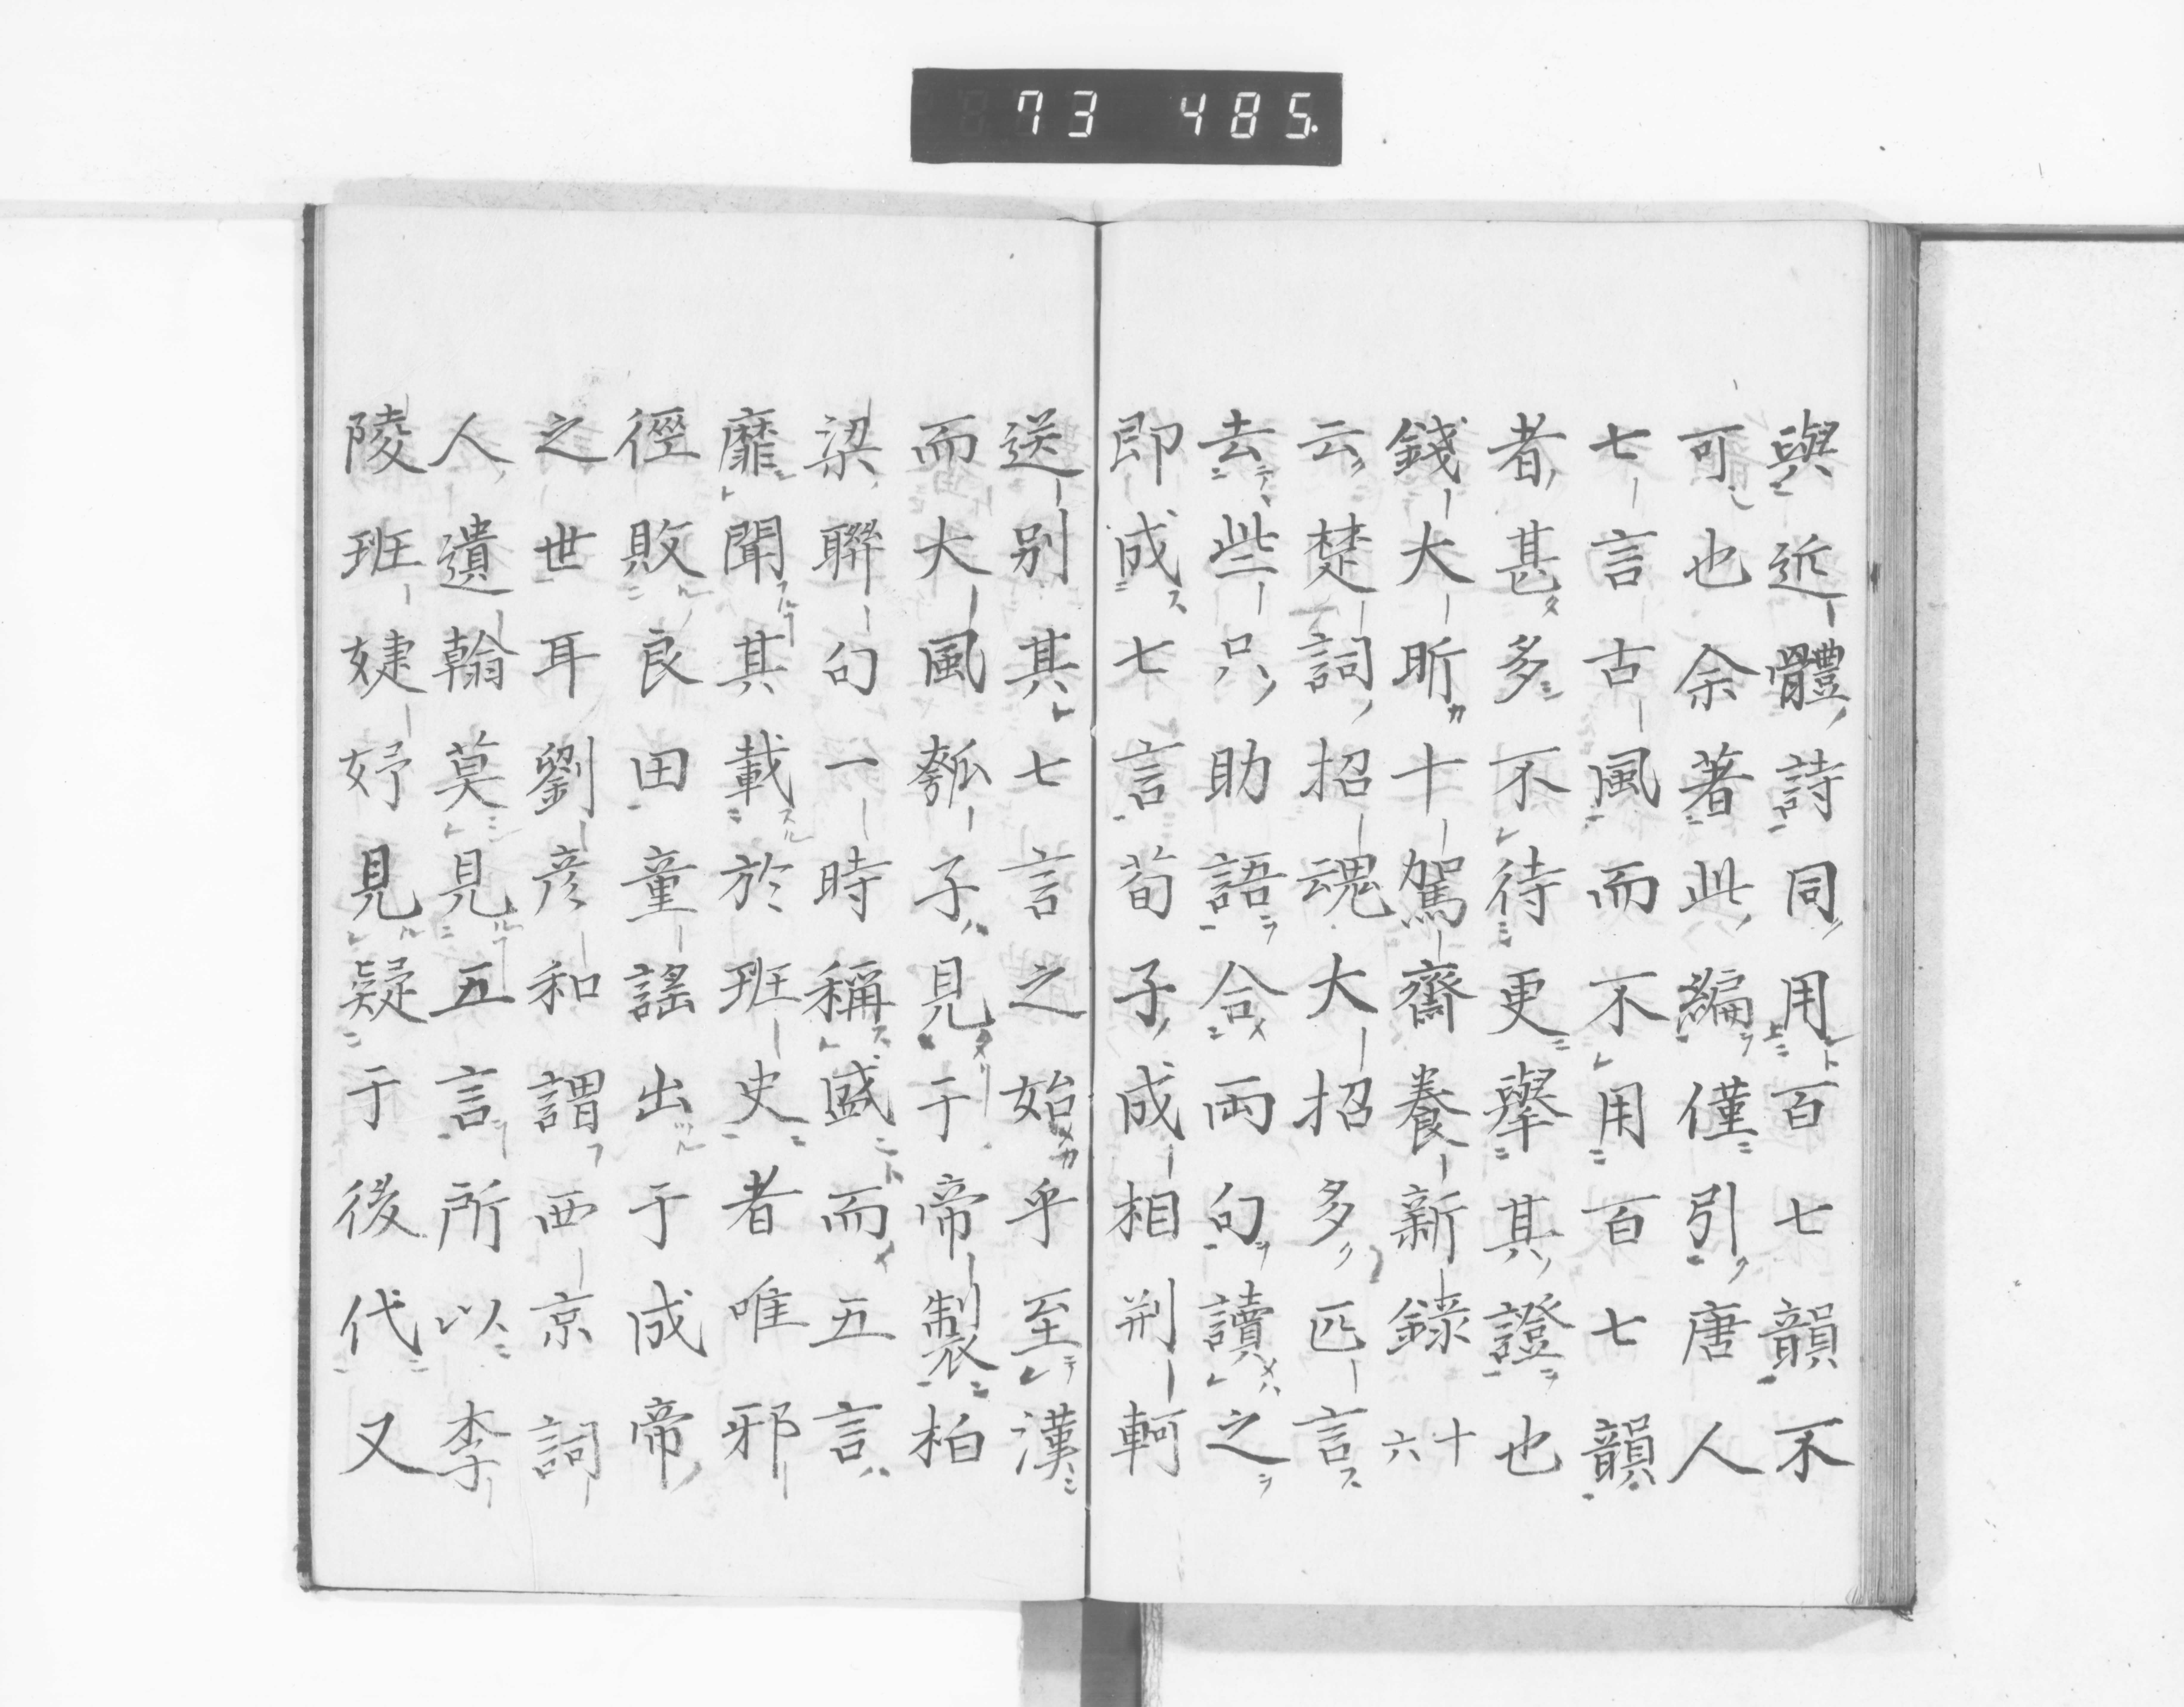 73 485.
與近體詩同用百七韻不
可也余著此編僅引唐人
七言古風而不用百七韻
者甚多不待更擧其證也
錢大昕十駕齋養新錄十六
云楚詞招魂大招多匹言
去些只助語合兩句讀之
即成七言荀子成相荆軻
送别其七言之始乎至漢
而大風瓠子見于帝製柏
梁聯句一時稱盛而五言
靡聞其載於班史者唯邪
徑敗良田童謠出于成帝
之世耳劉彦和謂西京詞
人遺翰莫見五言所以李
陵班婕妤見疑于後代又